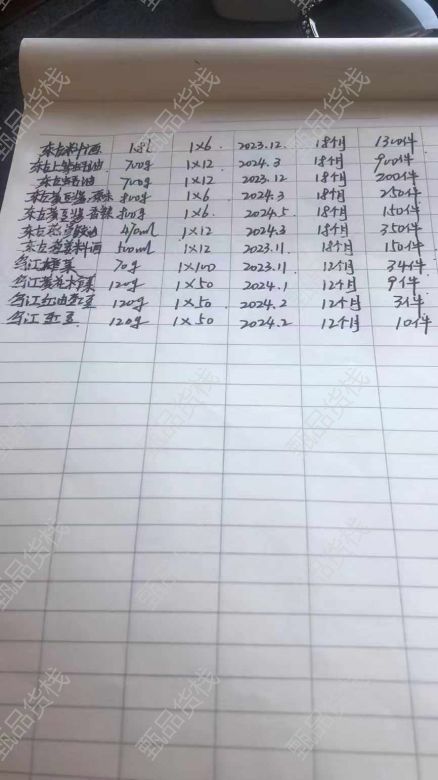 东古料酒 1.8L 1×6 2023.12. 18个月 1300件
东古上等蚝油 700g 1×12 2024.3 18个月 900件
东古蚝油 700g 1×12 2023.12 18个月 2000件
东古黄豆酱.原味 800g 1×6 2024.3 18个月 250件
东古黄豆酱.香辣 800g 1×6 2024.5 18个月 150件
东古 油 1×12 2024.3 18个月 350件
东古葱姜料酒 500ml 1×12 2023.11 18个月 150件
乌江榨菜 70g 1×100 2023.11 12个月 34件
乌江黄花什菜 120g 1×50 2024.1 12个月 9件
乌江红油豇豆 120g 1×50 2024.2 12个月 3件
乌江豇豆 120g 1×50 2024.2 12个月 10件
甄品货栈